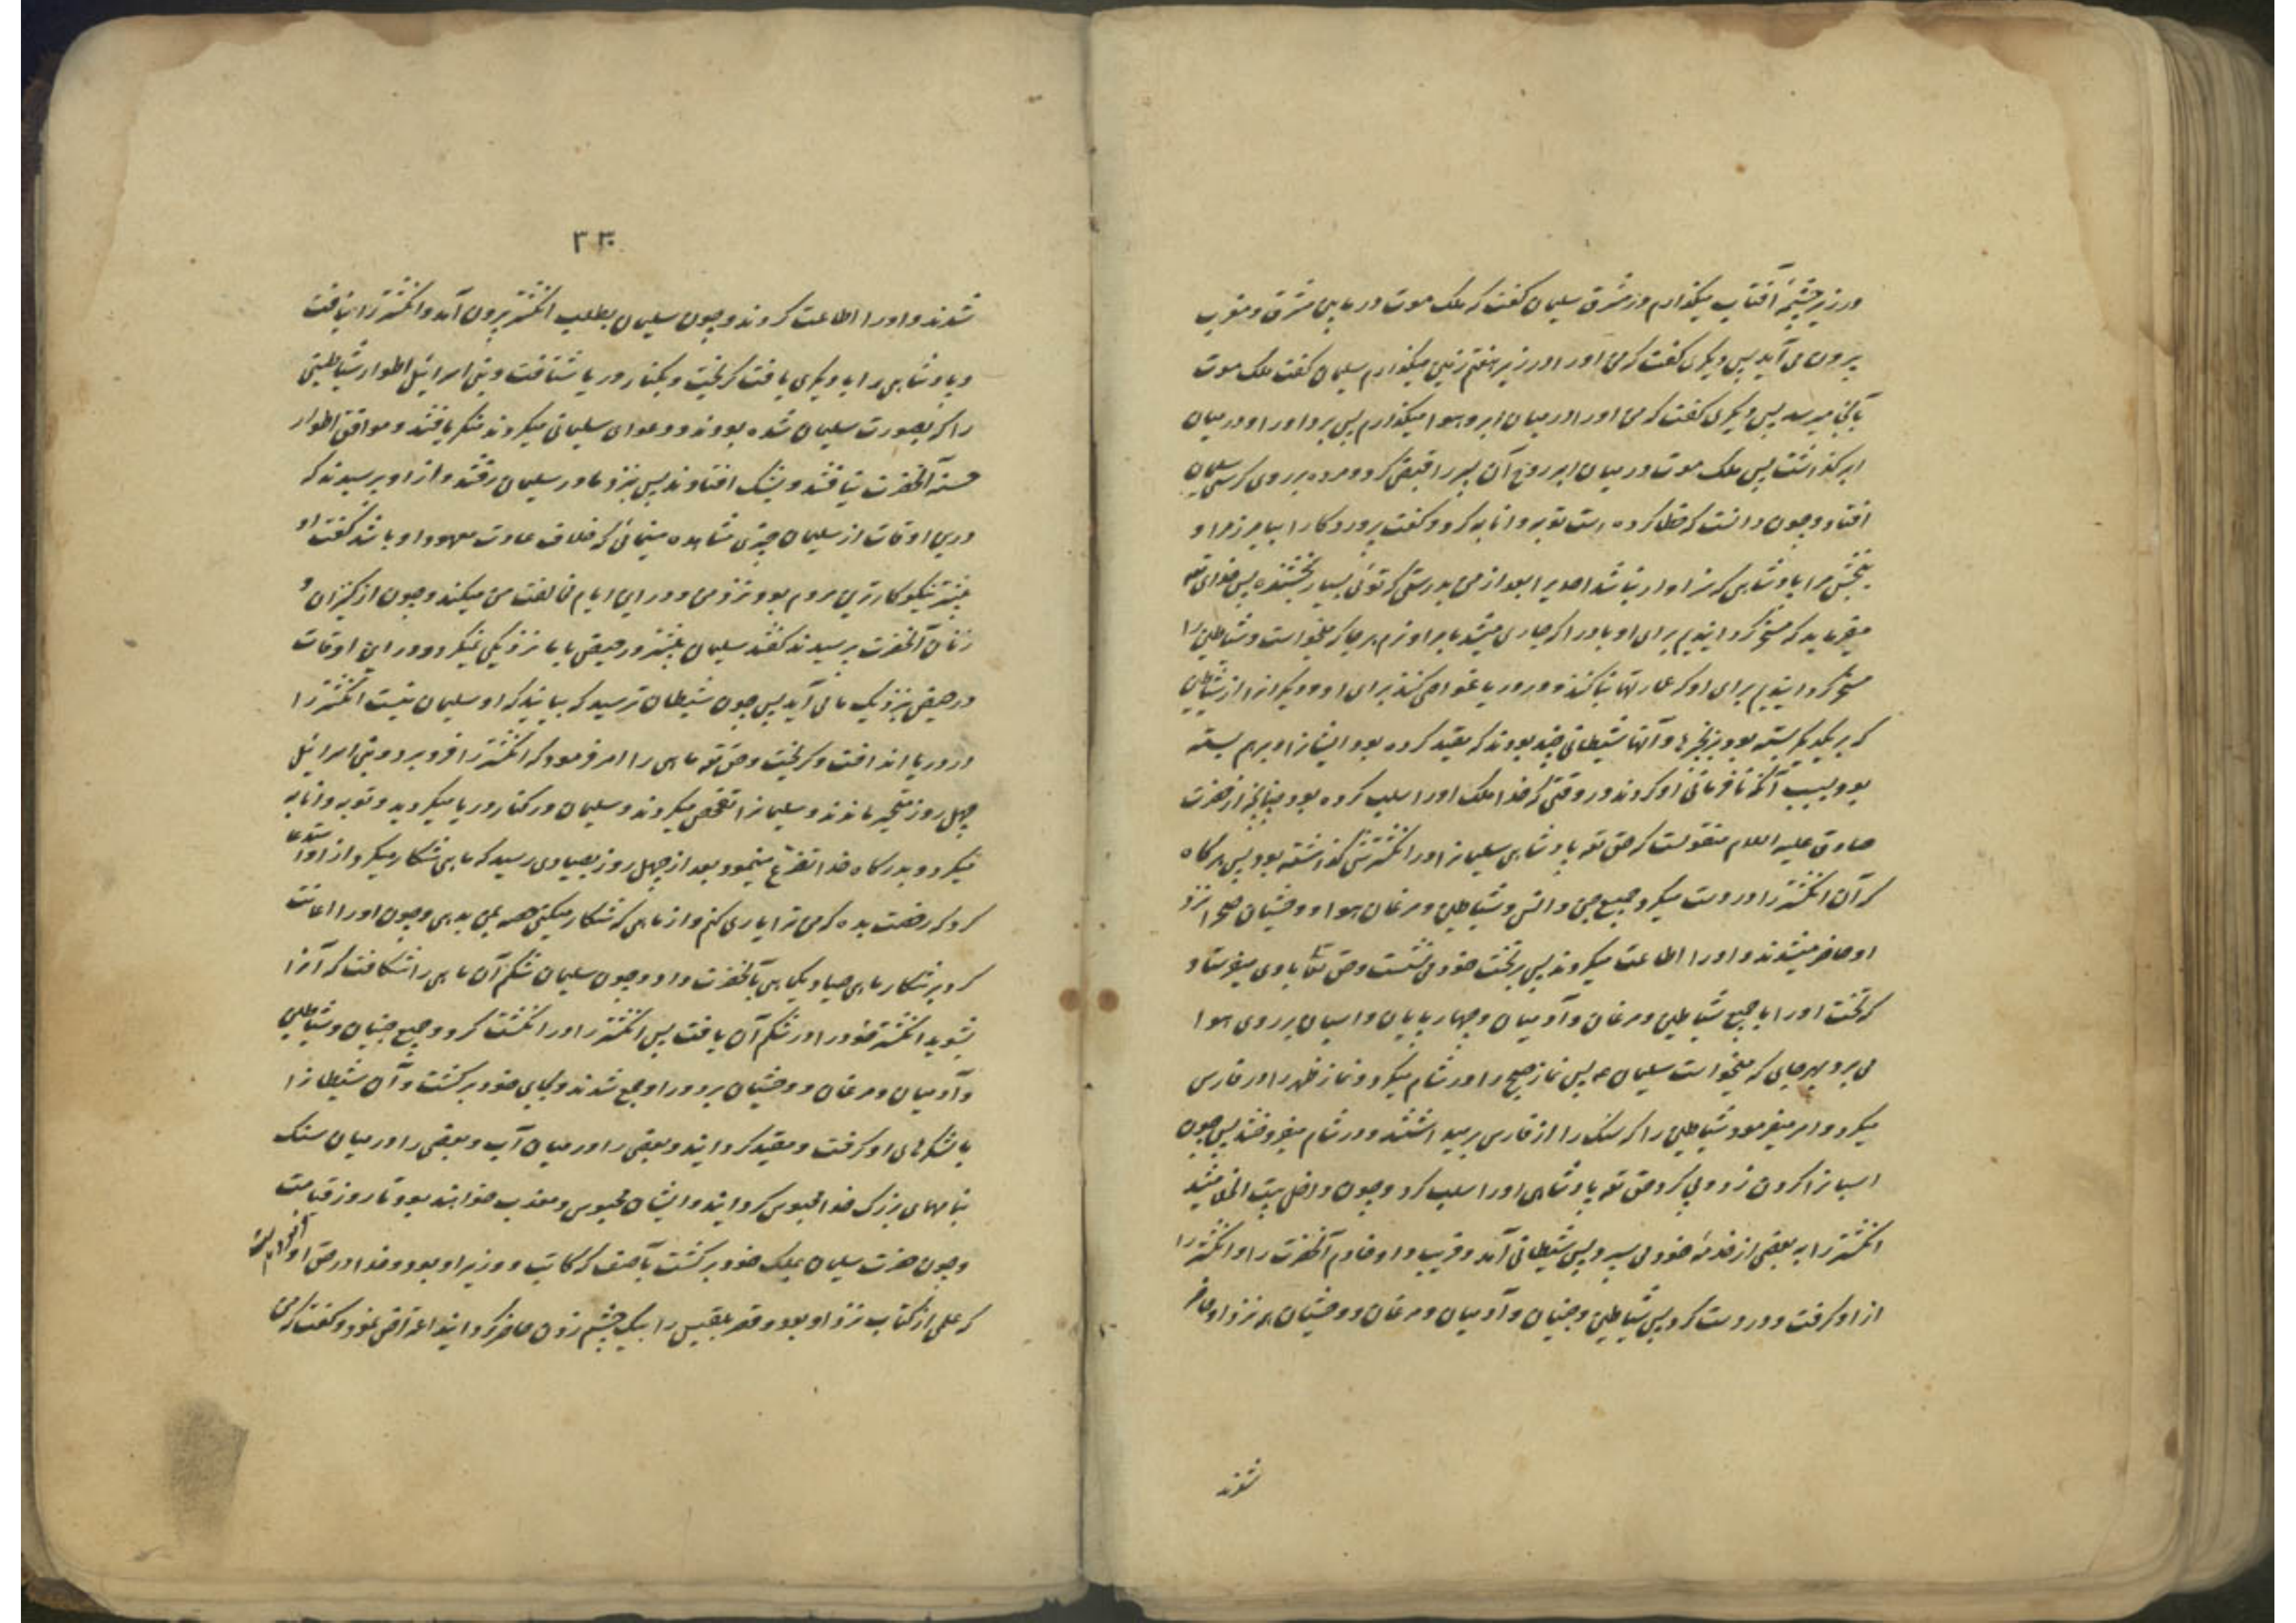 در زیر چشمهٔ آفتاب میگذارم در مشرق سلیمان گفت که ملک موت در مابین مشرق و مغرب
بیرون می آید پس دیگری گفت که من اورا در زیر هفتم زمین میگذارم سلیمان گفت ملک موت
بآنجا میرسد پس دیگری گفت که من اورا در میان ابر و هوا میگذارم پس برد اورا و در میان
ابر گذاشت پس ملک موت در میان ابر روح آن پسر را قبض کرد و مرده بر روی کرسی سلیمان
افتاد و چون دانست که خطا کرده است توبه و انابه کرد و گفت پروردکارا بیامرز مرا و
ببخش مرا پادشاهی که سزاوار نباشد احدیرا بعد از من بدرستی که توئی بسیار بخشنده پس خدای تعه
میفرماید که مسخر گردانیدیم برای او باد را که جاری میشد بامر او نرم بهر جا که میخواست و شیاطین را
مسخر گردانیدیم برای او که عمارتها بنا کنند و در دریا غواصی کنند برای او و دیگرانرا از شیاطین
که بر یکدیگر بسته بود بزنجیرها و آنها شیطانی چند بودند که مقید کرده بود ایشانرا و برهم بسته
بود بسبب آنکه نافرمانی او کردند در وقتی که خدا ملک اورا سلب کرده بود چنانچه از حضرت
صادق علیه السلام منقولست که حق تعه پادشاهی سلیمانرا در انگشترش گذاشته بود پس هرگاه
که آن انگشتر را در دست میکرد جمیع جن و انس و شیاطین و مرغان هوا و وحشیان صحرا نزد
او حاضر میشدند و اورا اطاعت میکردند پس بر تخت خود می نشست و حق تعالی بادی میفرستاد
که تخت اورا با جمیع شیاطین و مرغان و آدمیان و چهارپایان و اسبان بر روی هوا
می برد بهر جایی که میخواست سلیمان ع پس نماز صبح را در شام میکرد و نماز ظهر را در فارس
میکرد و امر میفرمود شیاطین را که سنک را از فارس بر میداشتند و در شام میفروختند پس چون
اسبانرا گردن زد و پی کرد حق تعه پادشاهی اورا سلب کرد و چون داخل بیت الخلا میشد
انگشتر را به بعضی از خدمهٔ خود می سپرد پس شیطانی آمد و فریب داد خادم آنحضرت را و انگشتر را
از او گرفت و در دست کرد پس شیاطین و جنیان و آدمیان و مرغان و وحشیان همه نزد او حاضر
شدند
۳۳۰
شدند و اورا اطاعت کردند و چون سلیمان بطلب انگشتر بیرون آمد و انگشتر را نیافت
و پادشاهی را با دیگری یافت گریخت و بکنار دریا شتافت و بنی اسرائیل اطوار شیاطینی
را که بصورت سلیمان شده بودند و دعوای سلیمانی میکردند منکر یافتند و موافق اطوار
حسنه آنحضرت نیافتند و بشک افتادند پس بنزد مادر سلیمان رفتند و از او پرسیدند که
درین اوقات از سلیمان چیزی مشاهده مینمائی که خلاف عادت معهود او باشد گفت او
پیشتر نیکوکارترین مردم بود نزد من و در این ایام مخالفت من میکند و چون از کنیزان و
زنان آنحضرت پرسیدند گفتند سلیمان پیشتر در حیض با ما نزدیکی نمیکرد و در این اوقات
در حیض بنزدیک ما می آید پس چون شیطان ترسید که بیابند که او سلیمان نیست انگشتر را
در دریا انداخت و گریخت و حق تعه ماهی را امر فرمود که انگشتر را فرو برد و بنی اسرائیل
چهل روز متحیر ماندند و سلیمانرا تفحص میکردند و سلیمان در کنار دریا میگردید و توبه و انابه
میکرد و بدرگاه خدا تضرع مینمود و بعد از چهل روز بصیادی رسید که ماهی شکار میکرد از او استدعا
کرد که رخصت بده که من ترا یاری کنم و از ماهی که شکار میکنی حصه بمن بدهی و چون اورا اعانت
کرد بر شکار ماهی صیاد یک ماهی بآنحضرت داد و چون سلیمان شکم آن ماهی را شکافت که آنرا
بشوید انگشتر خود را در شکم آن یافت پس انگشتر را در انگشت کرد و جمیع جنیان و شیاطین
و آدمیان و مرغان و وحشیان بر دور او جمع شدند و بجای خود برگشت و آن شیطانرا
با لشکرهای او گرفت و مقید گردانید و بعضی را در میان آب و بعضی را در میان سنک
بنامهای بزرک خدا محبوس گردانید و ایشان محبوس و معذب خواهند بود تا روز قیامت
و چون حضرت سلیمان بملک خود برگشت بآصف که کاتب و وزیر او بود و خدا در حق او
که علمی از کتاب نزد او بود و قصر بلقیس را بیک چشم زدن حاضر گردانید اعتراض نمود و گفت که من